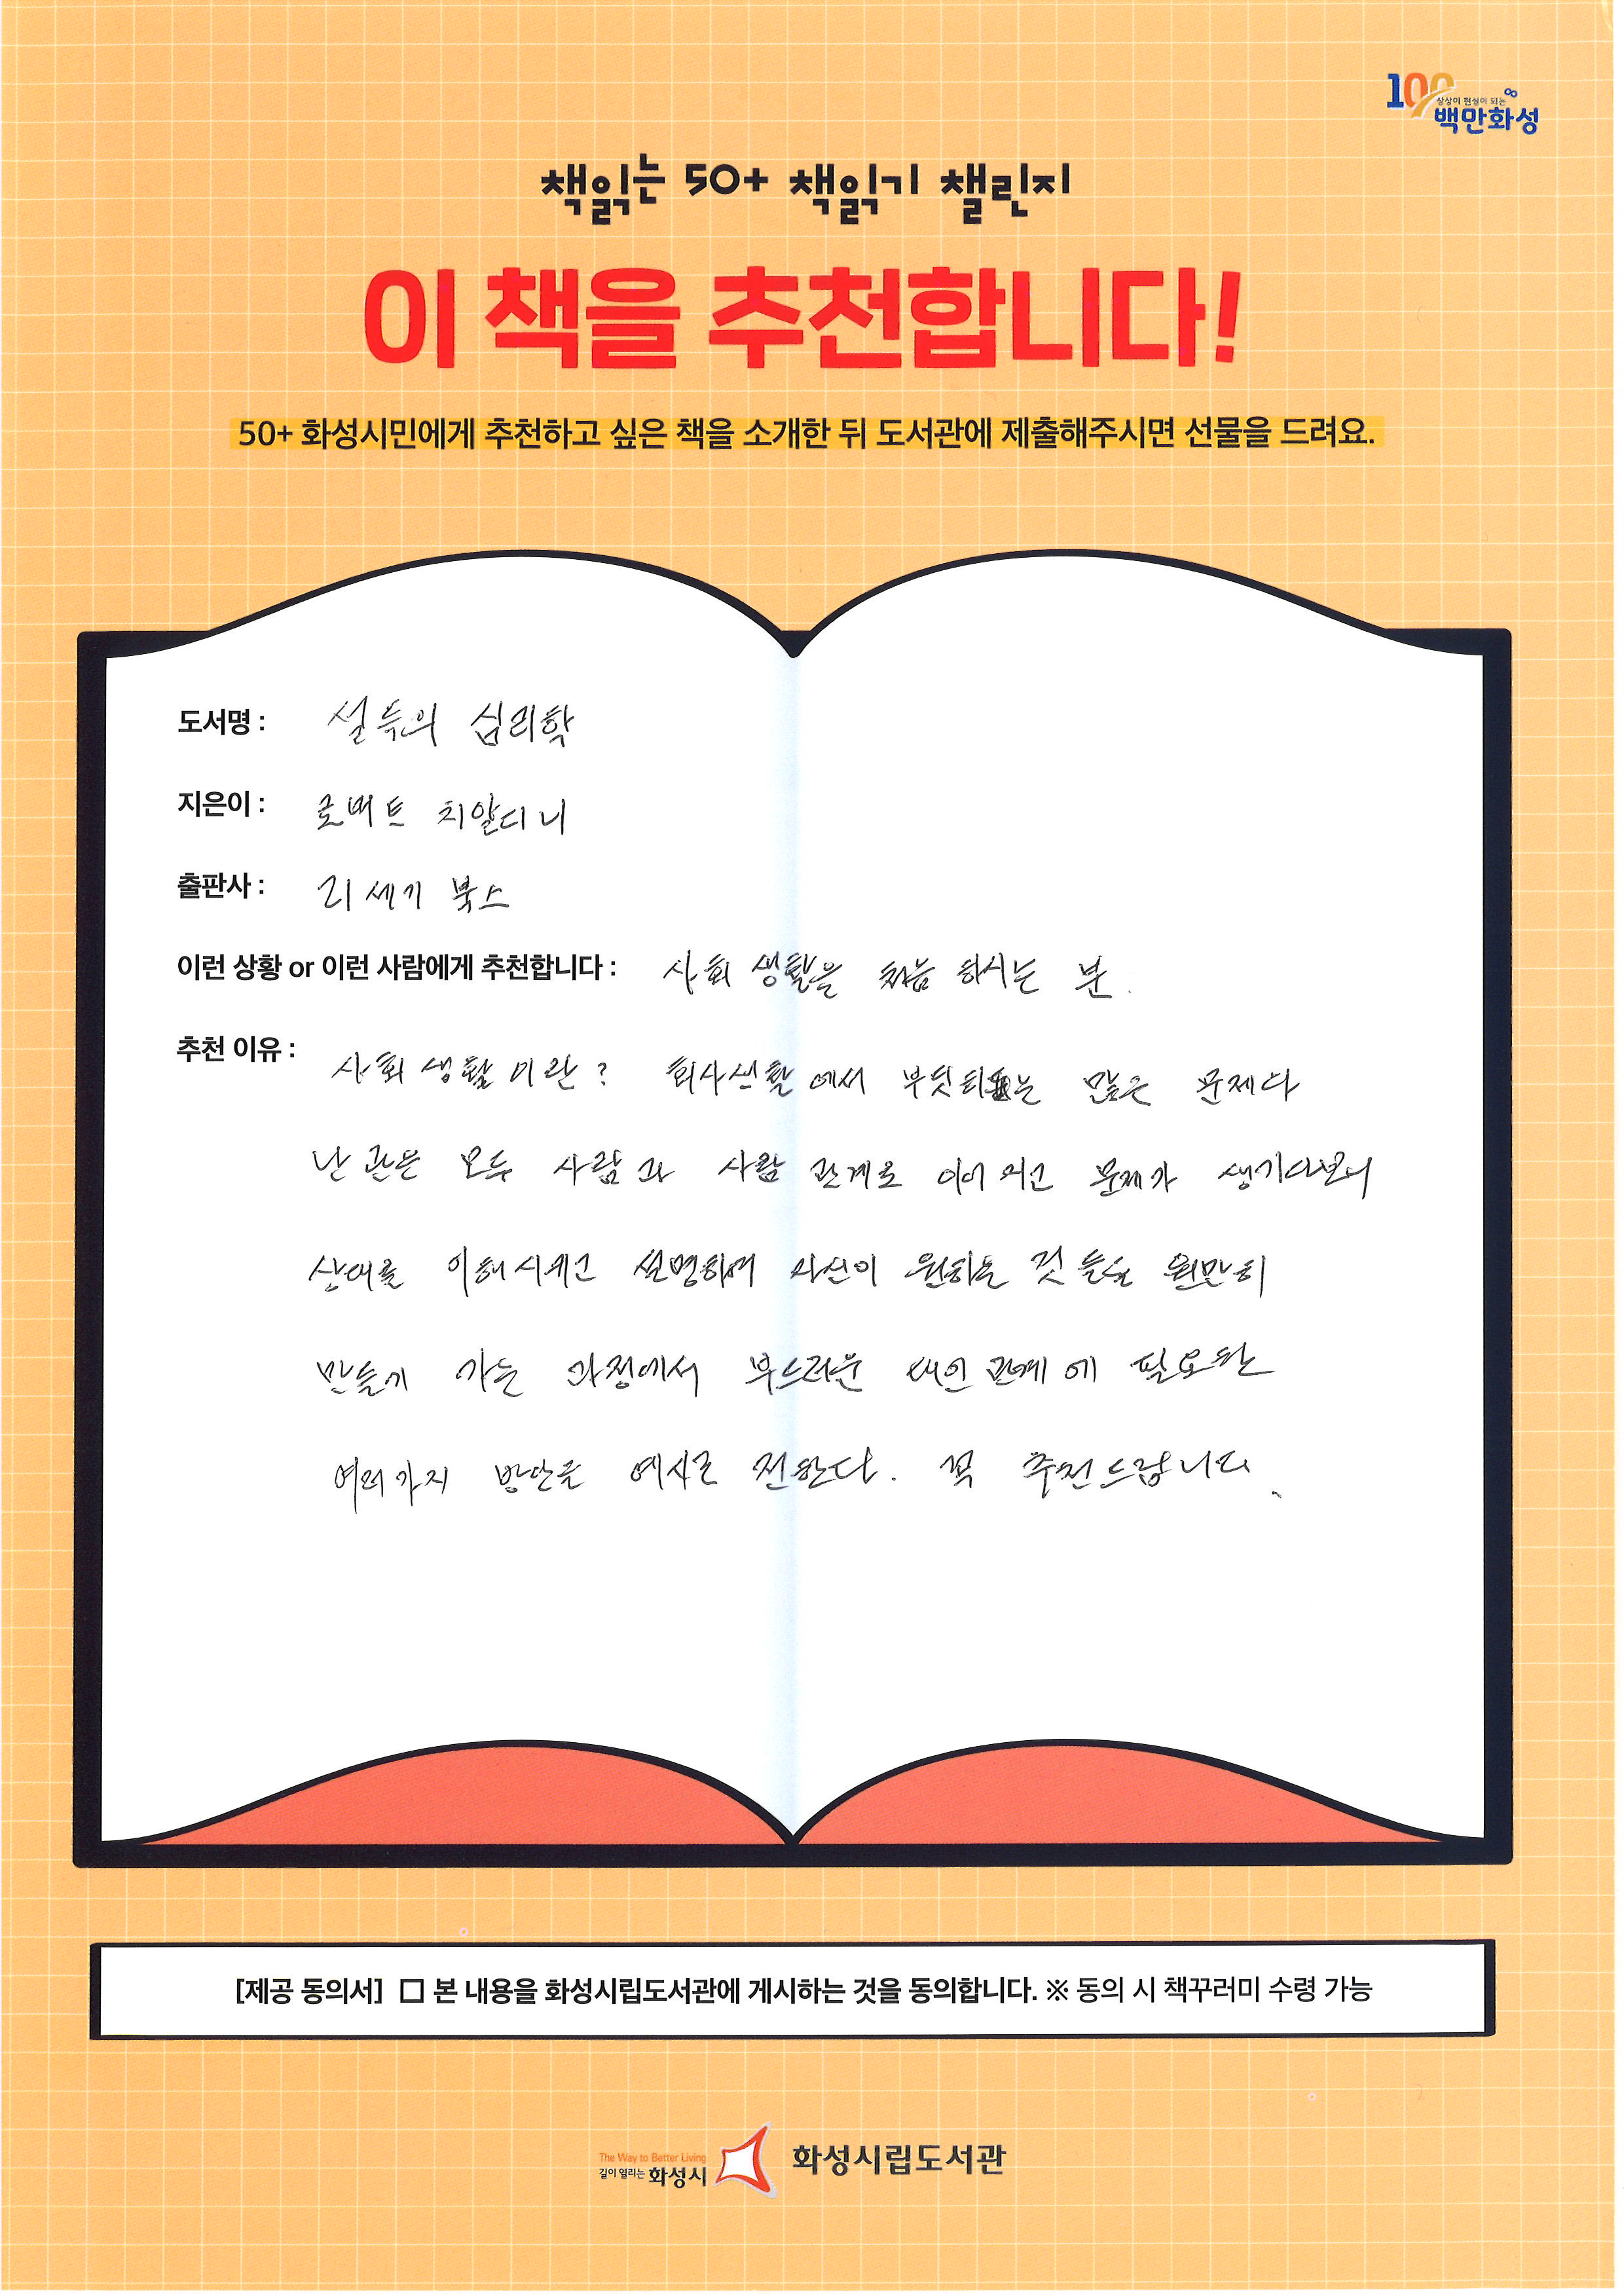 100
상상이 현실이 되는
백만화성
책읽는 50+ 책읽기 챌린지
이 책을 추천합니다!
50+ 화성시민에게 추천하고 싶은 책을 소개한 뒤 도서관에 제출해주시면 선물을 드려요.
도서명 : 설득의 심리학
지은이 : 로버트 치알디니
출판사 : 21세기 북스
이런 상황 or 이런 사람에게 추천합니다 : 사회 생활을 처음 하시는 분.
추천 이유 : 사회 생활이란? 회사생활에서 부딪히는 많은 문제와
난관은 모두 사람과 사람 관계로 이어지고 문제가 생기다보니
상대를 이해시키고 설명하며 자신이 원하는 것들을 원만히
만들어 가는 과정에서 부드러운 대인관계에 필요한
여러가지 방안을 예시로 전한다. 꼭 추천드립니다.
[제공 동의서] □ 본 내용을 화성시립도서관에 게시하는 것을 동의합니다. ※ 동의 시 책꾸러미 수령 가능
The Way to Better Living
길이 열리는 화성시
화성시립도서관